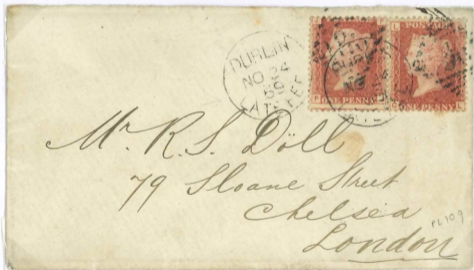 DUBLIN
LATE FEE
ONE PENNY
ONE PENNY
Mr. R. S. Döll
79 Sloane Street
Chelsea
London
PL 109